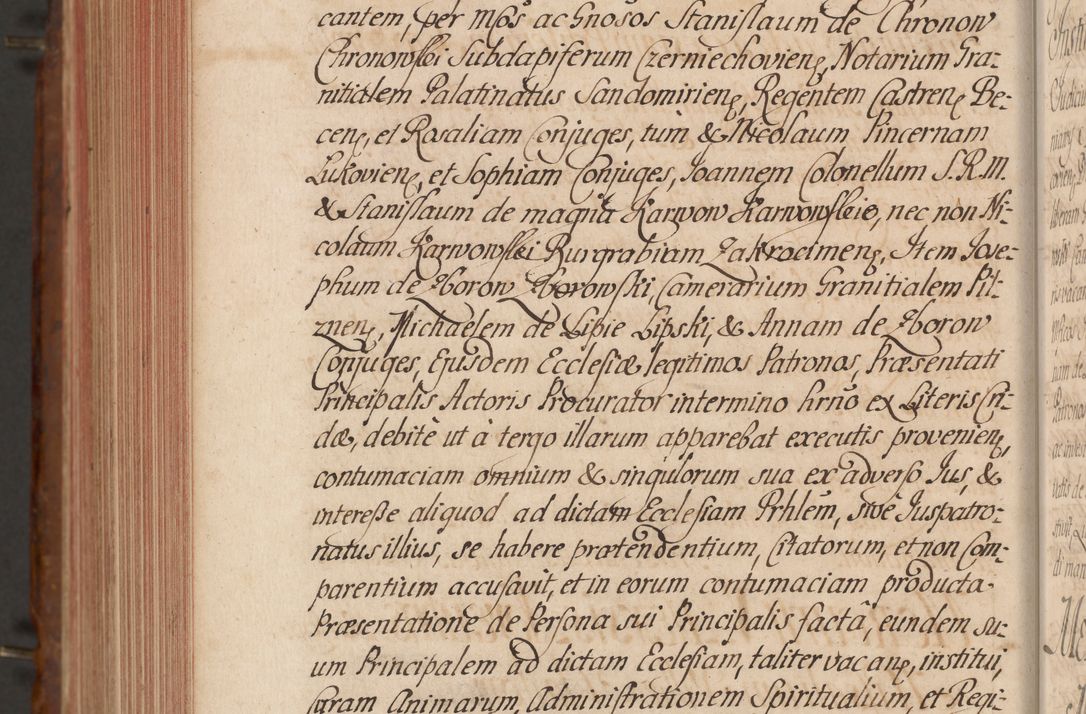 cantem, per Mḡos ac Gnosos Stanislaum de Chronow
Chronowski Subdapiferum Czerniechovien, Notarium Gra:
nitialem Palatinatus Sandomirien, Regentem Castren Be:
cen, et Rosaliam Conjuges, tum & Nicolaum Pincernam
Lukovien, et Sophiam Conjuges, Joannem Colonellum S.R.M.
& Stanislaum de magna Karwow Karwowskie, nec non Ni:
colaum Karwowski Burgrabiam Zakroczmen, Item Jose:
phum de Zborow Zborowski, Camerarium Granitialem Pil:
znen, Michaelem de Lipie Lipski, & Annam de Zborow
Conjuges, Ejusdem Ecclesiæ legitimos Patronos, Præsentati
Principalis Actoris Procurator in termino hrno ex Literis Cri:
dæ, debitè ut à tergo illarum apparebat executis provenien,
contumaciam omnium & singulorum sua ex adverso Jus, &
interesse aliquod ad dictam Ecclesiam Prhlem, sivè Juspatro:
natus illius, se habere prætendentium, Citatorum, et non Com:
parentium accusavit, et in eorum contumaciam producta
Præsentatione de Persona sui Principalis factâ, eundem su:
um Principalem ad dictam Ecclesiam, taliter vacan, institui,
Curam Animarum, Administrationem Spiritualium, et Regi: